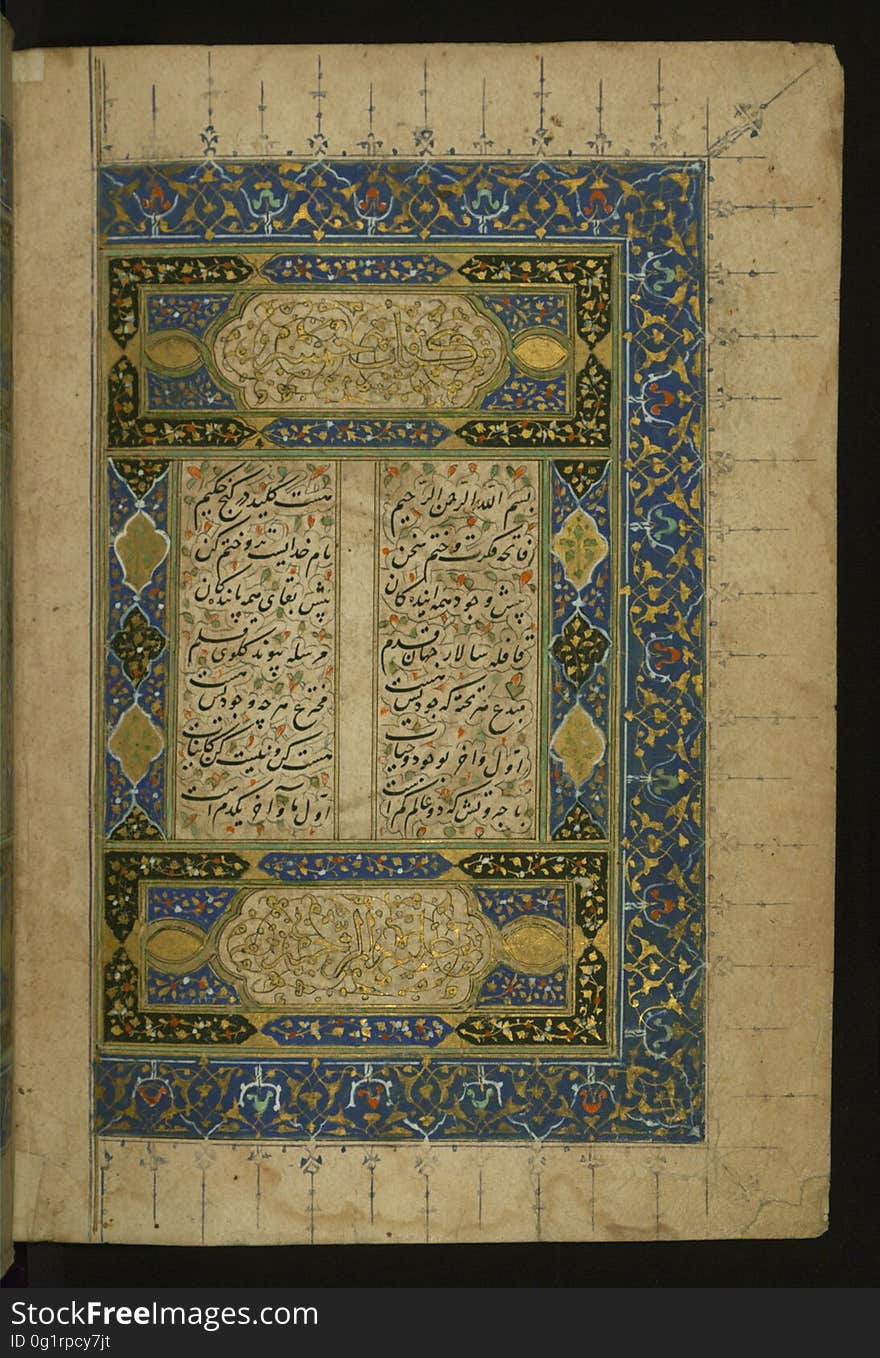 کتاب خمسه
بسم الله الرحمن الرحیم هست کلید در گنج حکیم
فاتحه فکرت و ختم سخن نام خدایست بدو ختم کن
پیش وجود همه آیندگان بیش بقای همه پایندگان
قافله سالار جهان قدم مرسله پیوند گلوی قلم
مبدع هر چشمه که جودیش هست مخترع هر چه وجودیش هست
اول و آخر بوجود و حیات هست کن و نیست کن کاینات
با جبروتش که دو عالم کم است اول ما و آخر یکدم است
علیه الرحمه
StockFreeImages.com
ID 0g1rpcy7jt